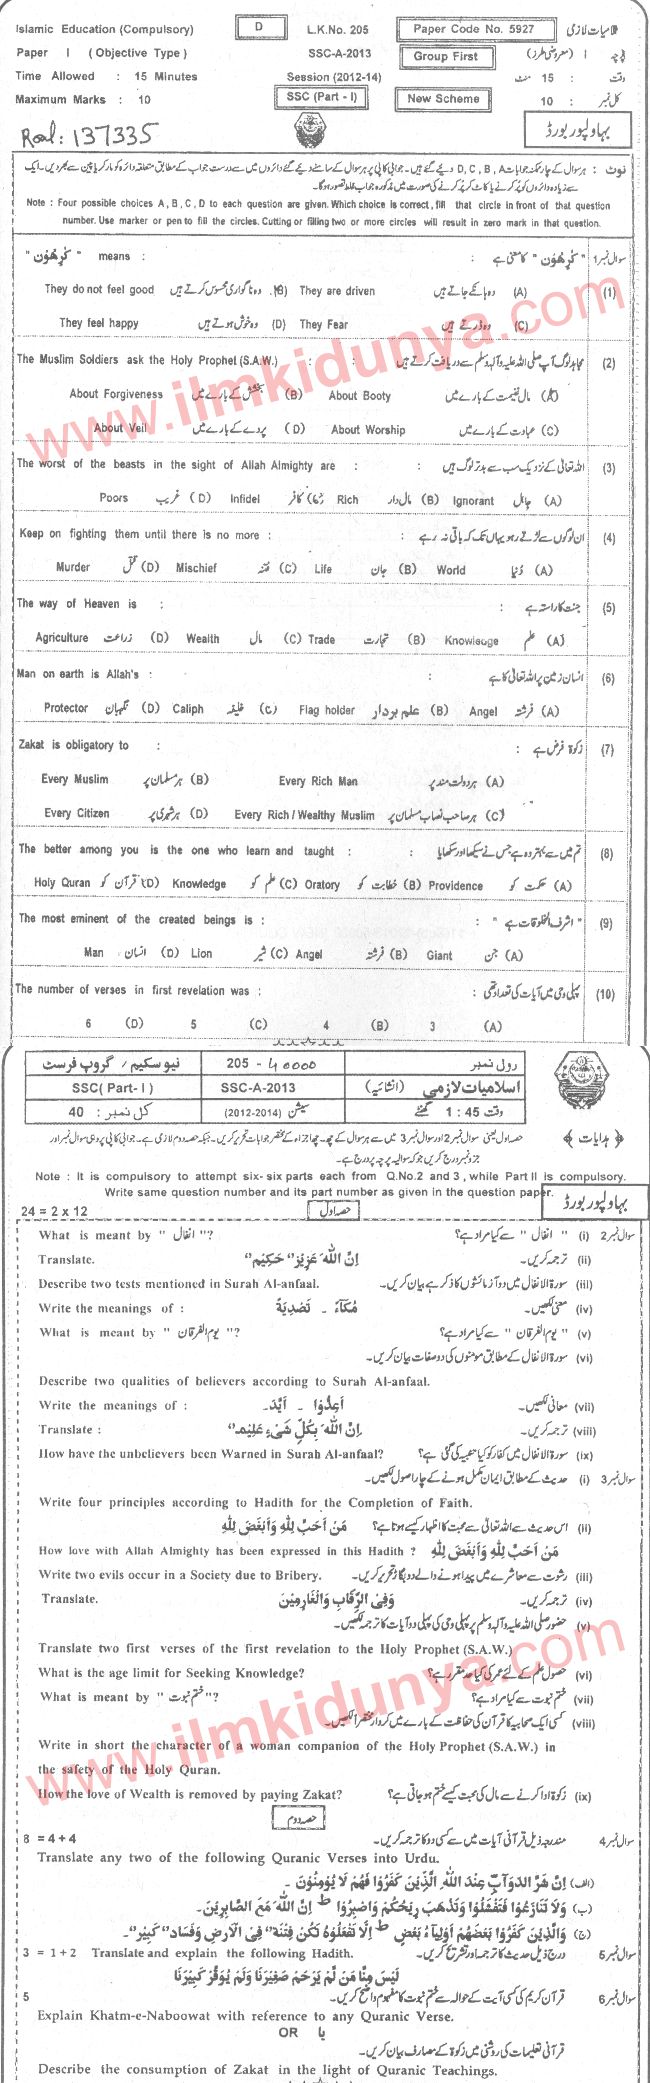 Islamic Education (Compulsory) D L.K.No. 205 Paper Code No. 5927 اسلامیات لازمی
Paper I (Objective Type) SSC-A-2013 Group First پرچہ I (معروضی طرز)
Time Allowed : 15 Minutes Session (2012-14) وقت : 15 منٹ
Maximum Marks : 10 SSC (Part - I) New Scheme کل نمبر : 10
Roal: 137335 بہاولپور بورڈ
نوٹ : ہر سوال کے چار ممکنہ جوابات D, C, B, A دیئے گئے ہیں۔ جوابی کاپی پر ہر سوال کے سامنے دیئے گئے دائروں میں سے درست جواب کے مطابق متعلقہ دائرہ کو مارکر یا پین سے بھر دیں۔ ایک
سے زیادہ دائروں کو پُر کرنے یا کاٹ کر پُر کرنے کی صورت میں مذکورہ جواب غلط تصور ہوگا۔
Note : Four possible choices A, B, C, D to each question are given. Which choice is correct, fill that circle in front of that question
number. Use marker or pen to fill the circles. Cutting or filling two or more circles will result in zero mark in that question.
سوال نمبر 1 " کٰرِھُوْن " کا معنی ہے : " کٰرِھُوْن " means :
(1) (A) وہ ہانکے جاتے ہیں They are driven (B) وہ ناگواری محسوس کرتے ہیں They do not feel good
(C) وہ ڈرتے ہیں They Fear (D) وہ خوش ہوتے ہیں They feel happy
(2) مجاہد لوگ آپ صلی اللہ علیہ وآلہ وسلم سے دریافت کرتے ہیں : The Muslim Soldiers ask the Holy Prophet (S.A.W.) :
(A) مال غنیمت کے بارے میں About Booty (B) بخشش کے بارے میں About Forgiveness
(C) عبادت کے بارے میں About Worship (D) پردے کے بارے میں About Veil
(3) اللہ تعالیٰ کے نزدیک سب سے بدتر لوگ ہیں : The worst of the beasts in the sight of Allah Almighty are :
(A) جاہل Ignorant (B) مال دار Rich کافر Infidel (D) غریب Poors
(4) ان لوگوں سے لڑتے رہو یہاں تک کہ باقی نہ رہے : Keep on fighting them until there is no more :
(A) دُنیا World (B) جان Life (C) فتنہ Mischief (D) قتل Murder
(5) جنت کا راستہ ہے : The way of Heaven is :
(A) علم Knowledge (B) تجارت Trade (C) مال Wealth (D) زراعت Agriculture
(6) انسان زمین پر اللہ تعالیٰ کا ہے : Man on earth is Allah's :
(A) فرشتہ Angel (B) علم بردار Flag holder (C) خلیفہ Caliph (D) نگہبان Protector
(7) زکوٰۃ فرض ہے : Zakat is obligatory to :
(A) ہر دولت مند پر Every Rich Man (B) ہر مسلمان پر Every Muslim
(C) ہر صاحب نصاب مسلمان پر Every Rich / Wealthy Muslim (D) ہر شہری پر Every Citizen
(8) تم میں سے بہتر وہ ہے جس نے سیکھا اور سکھایا : The better among you is the one who learn and taught :
(A) حکمت کو Providence (B) خطابت کو Oratory (C) علم کو Knowledge (D) قرآن کو Holy Quran
(9) " اشرف المخلوقات ہے " : The most eminent of the created beings is :
(A) جن Giant (B) فرشتہ Angel (C) شیر Lion (D) انسان Man
(10) پہلی وحی میں آیات کی تعداد تھی : The number of verses in first revelation was :
(A) 3 (B) 4 (C) 5 (D) 6
رول نمبر 205 - 40000 نیو سکیم / گروپ فرسٹ
اسلامیات لازمی (انشائیہ) SSC-A-2013 SSC( Part- I )
وقت 1 : 45 گھنٹے سیشن (2012-2014) کل نمبر : 40
﴿ ہدایات ﴾ حصہ اول یعنی سوال نمبر 2 اور سوال نمبر 3 میں سے ہر سوال کے چھ۔ چھ اجزاء کے مختصر جوابات تحریر کریں۔ جبکہ حصہ دوم لازمی ہے۔ جوابی کاپی پر وہی سوال نمبر اور
جزو نمبر درج کریں جو کہ سوالیہ پرچہ پر درج ہے۔
Note : It is compulsory to attempt six- six parts each from Q.No.2 and 3 , while Part II is compulsory.
Write same question number and its part number as given in the question paper.
بہاولپور بورڈ
24 = 2 x 12 حصہ اول
سوال نمبر 2 (i) " انفال " سے کیا مراد ہے؟ What is meant by " انفال "?
(ii) ترجمہ کریں۔ اِنَّ اللّٰہَ عَزِیْزٌ حَکِیْمٌ Translate.
(iii) سورۃ الانفال میں دو آزمائشوں کا ذکر ہے بیان کریں۔ Describe two tests mentioned in Surah Al-anfaal.
(iv) معنی لکھیں۔ مُکَآءً ۔ تَصْدِیَۃً Write the meanings of :
(v) " یوم الفرقان " سے کیا مراد ہے؟ What is meant by " یوم الفرقان "?
(vi) سورۃ الانفال کے مطابق مومنوں کی دو صفات بیان کریں۔
Describe two qualities of believers according to Surah Al-anfaal.
(vii) معانی لکھیں۔ اَعِدُّوْا ۔ اَیَّدَ۔ Write the meanings of :
(viii) ترجمہ کریں۔ اِنَّ اللّٰہَ بِکُلِّ شَیْءٍ عَلِیْمٌ Translate :
(ix) سورۃ الانفال میں کفار کو کیا تنبیہ کی گئی ہے؟ How have the unbelievers been Warned in Surah Al-anfaal?
سوال نمبر 3 (i) حدیث کے مطابق ایمان مکمل ہونے کے چار اصول لکھیں۔
Write four principles according to Hadith for the Completion of Faith.
(ii) اس حدیث سے اللہ تعالیٰ سے محبت کا اظہار کیسے ہوتا ہے؟ مَنْ اَحَبَّ لِلّٰہِ وَاَبْغَضَ لِلّٰہِ
How love with Allah Almighty has been expressed in this Hadith ? مَنْ اَحَبَّ لِلّٰہِ وَاَبْغَضَ لِلّٰہِ
(iii) رشوت سے معاشرے میں پیدا ہونے والے دو بگاڑ تحریر کریں۔ Write two evils occur in a Society due to Bribery.
(iv) ترجمہ کریں۔ وَفِی الرِّقَابِ وَالْغَارِمِیْنَ Translate.
(v) حضور صلی اللہ علیہ وآلہ وسلم پر پہلی وحی کی پہلی دو آیات کا ترجمہ لکھیں۔
Translate two first verses of the first revelation to the Holy Prophet (S.A.W.)
(vi) حصول علم کے لئے عمر کی کیا حد مقرر ہے؟ What is the age limit for Seeking Knowledge?
(vii) ختم نبوت سے کیا مراد ہے؟ What is meant by " ختم نبوت "?
(viii) کسی ایک صحابیہ کا قرآن کی حفاظت کے بارے میں کردار مختصراً لکھیں۔
Write in short the character of a woman companion of the Holy Prophet (S.A.W.) in
the safety of the Holy Quran.
(ix) زکوٰۃ ادا کرنے سے مال کی محبت کیسے ختم ہو جاتی ہے؟ How the love of Wealth is removed by paying Zakat?
حصہ دوم
سوال نمبر 4 مندرجہ ذیل قرآنی آیات میں سے کسی دو کا ترجمہ کریں۔ 8 = 4 + 4
Translate any two of the following Quranic Verses into Urdu.
(الف) اِنَّ شَرَّ الدَّوَآبِّ عِنْدَ اللّٰہِ الَّذِیْنَ کَفَرُوْا فَھُمْ لَا یُؤْمِنُوْنَ۔
(ب) وَلَا تَنَازَعُوْا فَتَفْشَلُوْا وَتَذْھَبَ رِیْحُکُمْ وَاصْبِرُوْا ط اِنَّ اللّٰہَ مَعَ الصَّابِرِیْنَ۔
(ج) وَالَّذِیْنَ کَفَرُوْا بَعْضُھُمْ اَوْلِیَآءُ بَعْضٍ ط اِلَّا تَفْعَلُوْہُ تَکُنْ فِتْنَۃٌ فِی الْاَرْضِ وَفَسَادٌ کَبِیْرٌ۔
سوال نمبر 5 درج ذیل حدیث کا ترجمہ اور تشریح کریں۔ 3 = 1 + 2 Translate and explain the following Hadith.
لَیْسَ مِنَّا مَنْ لَّمْ یَرْحَمْ صَغِیْرَنَا وَلَمْ یُوَقِّرْ کَبِیْرَنَا
سوال نمبر 6 قرآن کریم کی کسی آیت کے حوالہ سے ختم نبوت کا مفہوم واضح کریں۔ 5
Explain Khatm-e-Naboowat with reference to any Quranic Verse.
OR یا
قرآنی تعلیمات کی روشنی میں زکوٰۃ کے مصارف بیان کریں۔
Describe the consumption of Zakat in the light of Quranic Teachings.
www.ilmkidunya.com
www.ilmkidunya.com